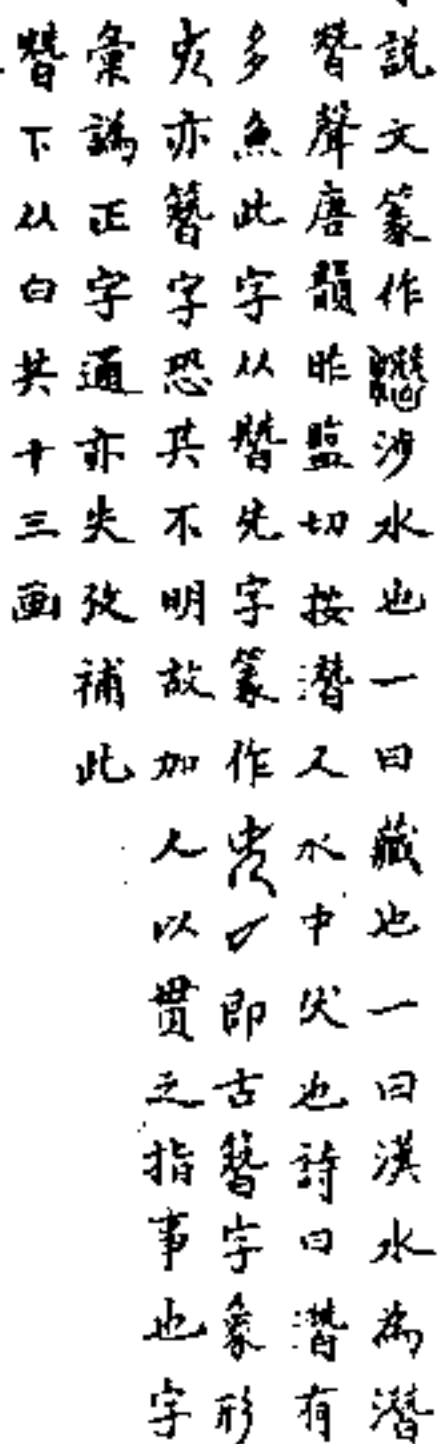 説文篆作涉水也一曰藏也一曰漢水為潛
朁聲唐韻昨鹽切按潛入水中伏也詩曰潛有
多魚此字从朁兂字篆作即古簪字象形
兂亦簪字恐其不明故加人以貫之指事也字
彙譌正字通亦失攷補此
朁下从白共十三画